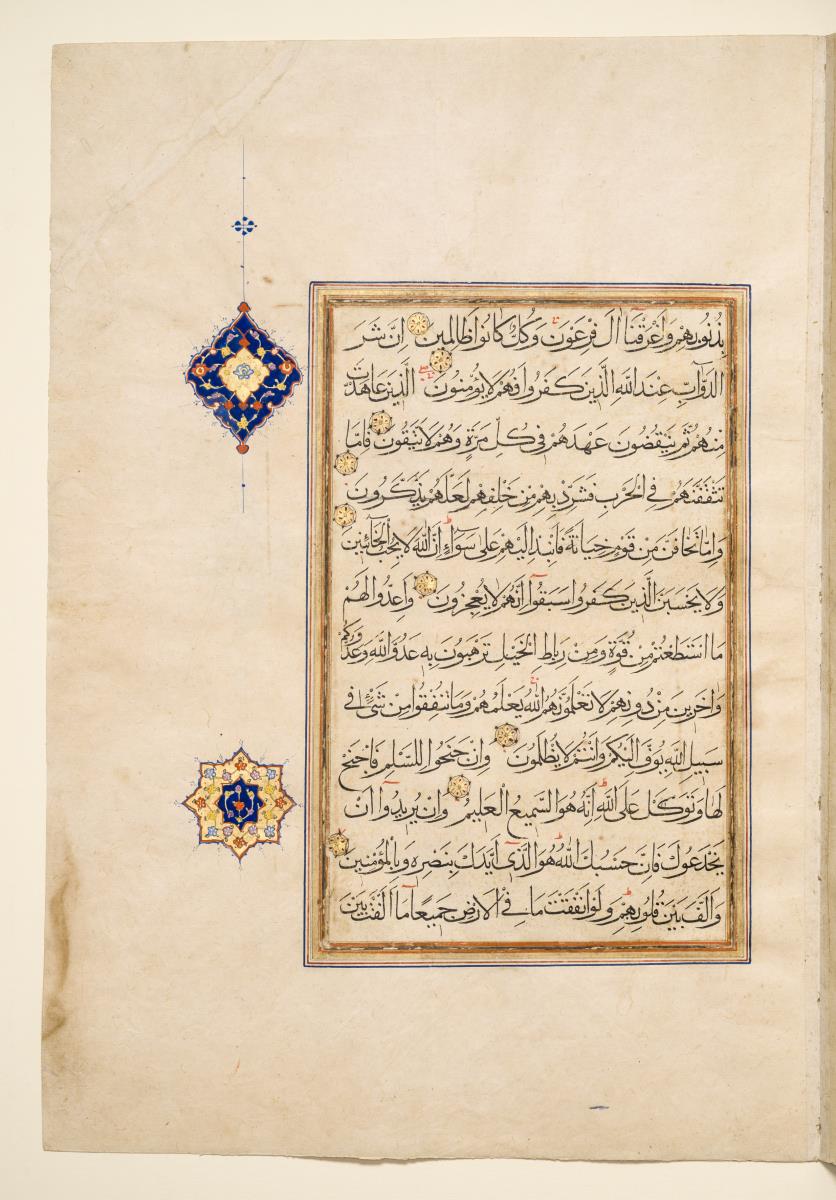 بِذُنُوبِهِمْ وَأَغْرَقْنَا آلَ فِرْعَوْنَ وَكُلٌّ كَانُوا ظَالِمِينَ إِنَّ شَرَّ
الدَّوَآبِّ عِنْدَ اللَّهِ الَّذِينَ كَفَرُوا فَهُمْ لَا يُؤْمِنُونَ الَّذِينَ عَاهَدْتَ
مِنْهُمْ ثُمَّ يَنْقُضُونَ عَهْدَهُمْ فِي كُلِّ مَرَّةٍ وَهُمْ لَا يَتَّقُونَ فَإِمَّا
تَثْقَفَنَّهُمْ فِي الْحَرْبِ فَشَرِّدْ بِهِمْ مَنْ خَلْفَهُمْ لَعَلَّهُمْ يَذَّكَّرُونَ
وَإِمَّا تَخَافَنَّ مِنْ قَوْمٍ خِيَانَةً فَانْبِذْ إِلَيْهِمْ عَلَى سَوَآءٍ إِنَّ اللَّهَ لَا يُحِبُّ الْخَآئِنِينَ
وَلَا يَحْسَبَنَّ الَّذِينَ كَفَرُوا سَبَقُوا إِنَّهُمْ لَا يُعْجِزُونَ وَأَعِدُّوا لَهُمْ
مَا اسْتَطَعْتُمْ مِنْ قُوَّةٍ وَمِنْ رِبَاطِ الْخَيْلِ تُرْهِبُونَ بِهِ عَدُوَّ اللَّهِ وَعَدُوَّكُمْ
وَآخَرِينَ مِنْ دُونِهِمْ لَا تَعْلَمُونَهُمُ اللَّهُ يَعْلَمُهُمْ وَمَا تُنْفِقُوا مِنْ شَيْءٍ فِي
سَبِيلِ اللَّهِ يُوَفَّ إِلَيْكُمْ وَأَنْتُمْ لَا تُظْلَمُونَ وَإِنْ جَنَحُوا لِلسَّلْمِ فَاجْنَحْ
لَهَا وَتَوَكَّلْ عَلَى اللَّهِ إِنَّهُ هُوَ السَّمِيعُ الْعَلِيمُ وَإِنْ يُرِيدُوا أَنْ
يَخْدَعُوكَ فَإِنَّ حَسْبَكَ اللَّهُ هُوَ الَّذِي أَيَّدَكَ بِنَصْرِهِ وَبِالْمُؤْمِنِينَ
وَأَلَّفَ بَيْنَ قُلُوبِهِمْ وَلَوْ أَنْفَقْتَ مَا فِي الْأَرْضِ جَمِيعًا مَا أَلَّفْتَ بَيْنَ